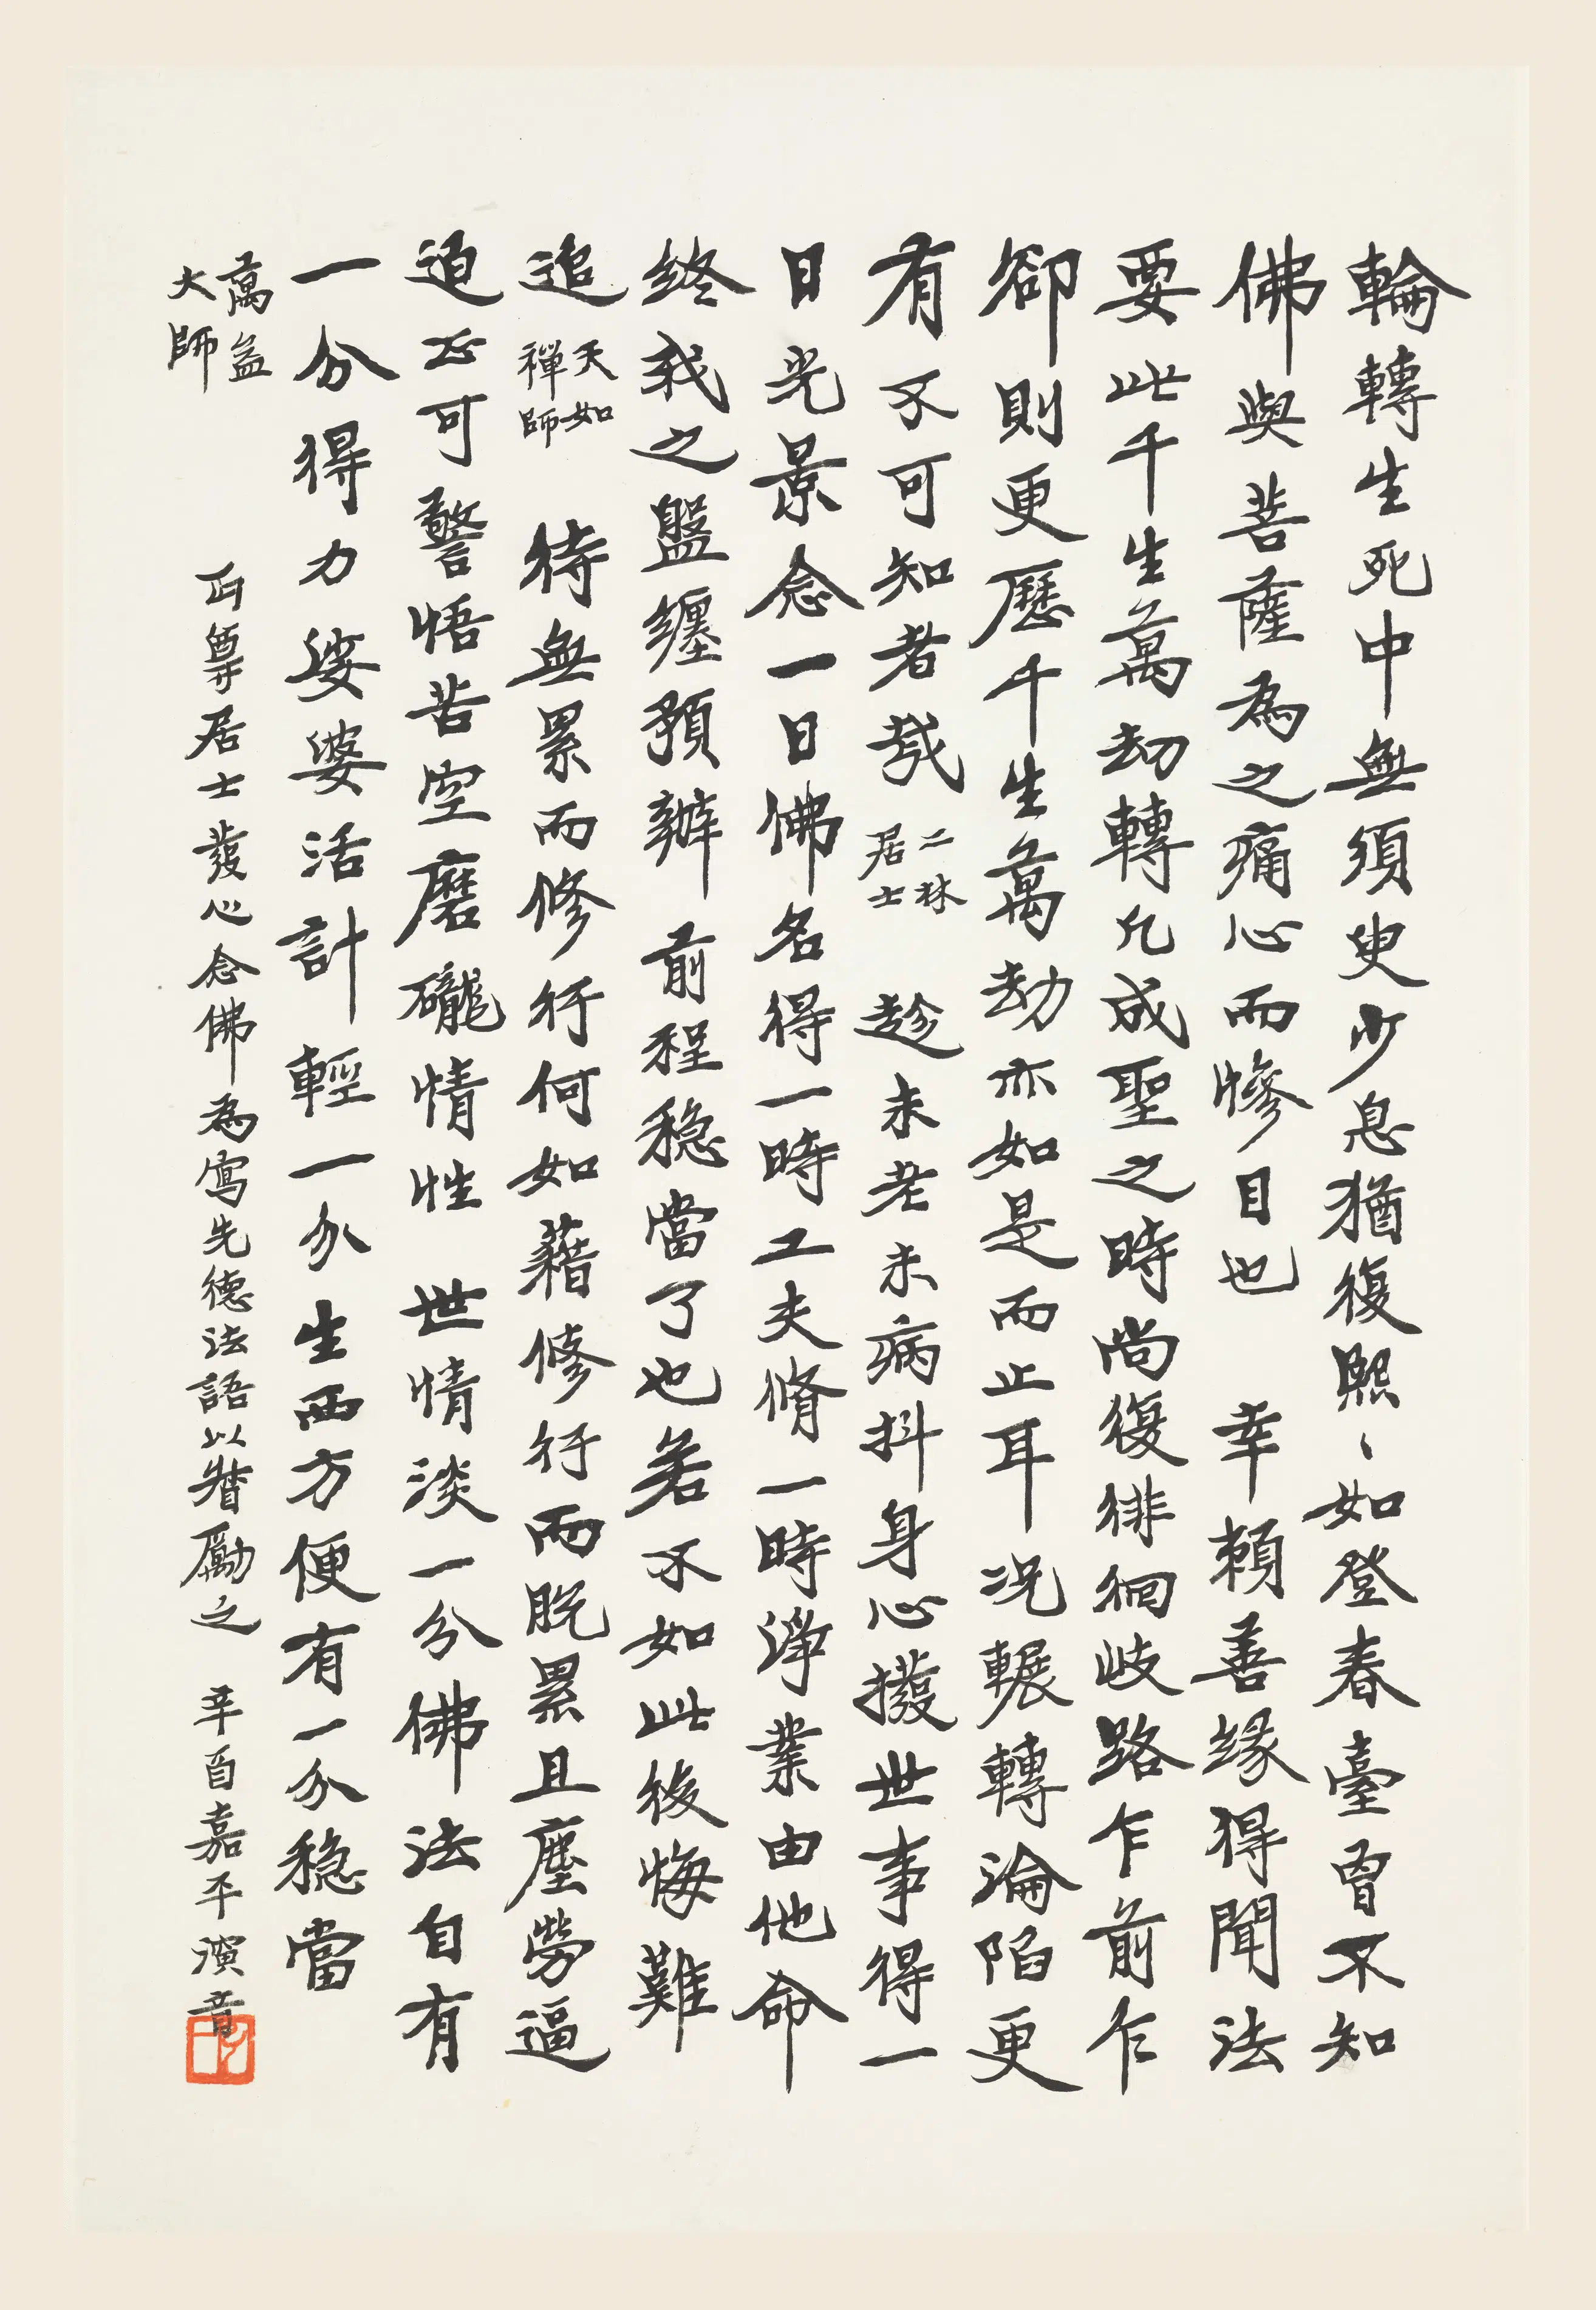 輪轉生死中無須臾少息猶復熙〻如登春臺曾不知
佛與菩薩為之痛心而慘目也　幸賴善緣得聞法
要此千生萬劫轉凡成聖之時尚復徘徊歧路乍前乍
卻則更歷千生萬劫亦如是而止耳況輾轉淪陷更
有不可知者哉
二林
居士
趁未老未病抖身心撥世事得一
日光景念一日佛名得一時工夫脩一時淨業由他命
終我之盤纏預辦前程穩當了也若不如此後悔難
追
天如
禪師
待無累而修行何如藉修行而脫累且塵勞逼
迫正可警悟苦空磨礲情性　世情淡一分佛法自有
一分得力娑婆活計輕一分生西方便有一分穩當
蕅益
大師
尊居士發心念佛為寫先德法語以督勵之　辛酉嘉平演音